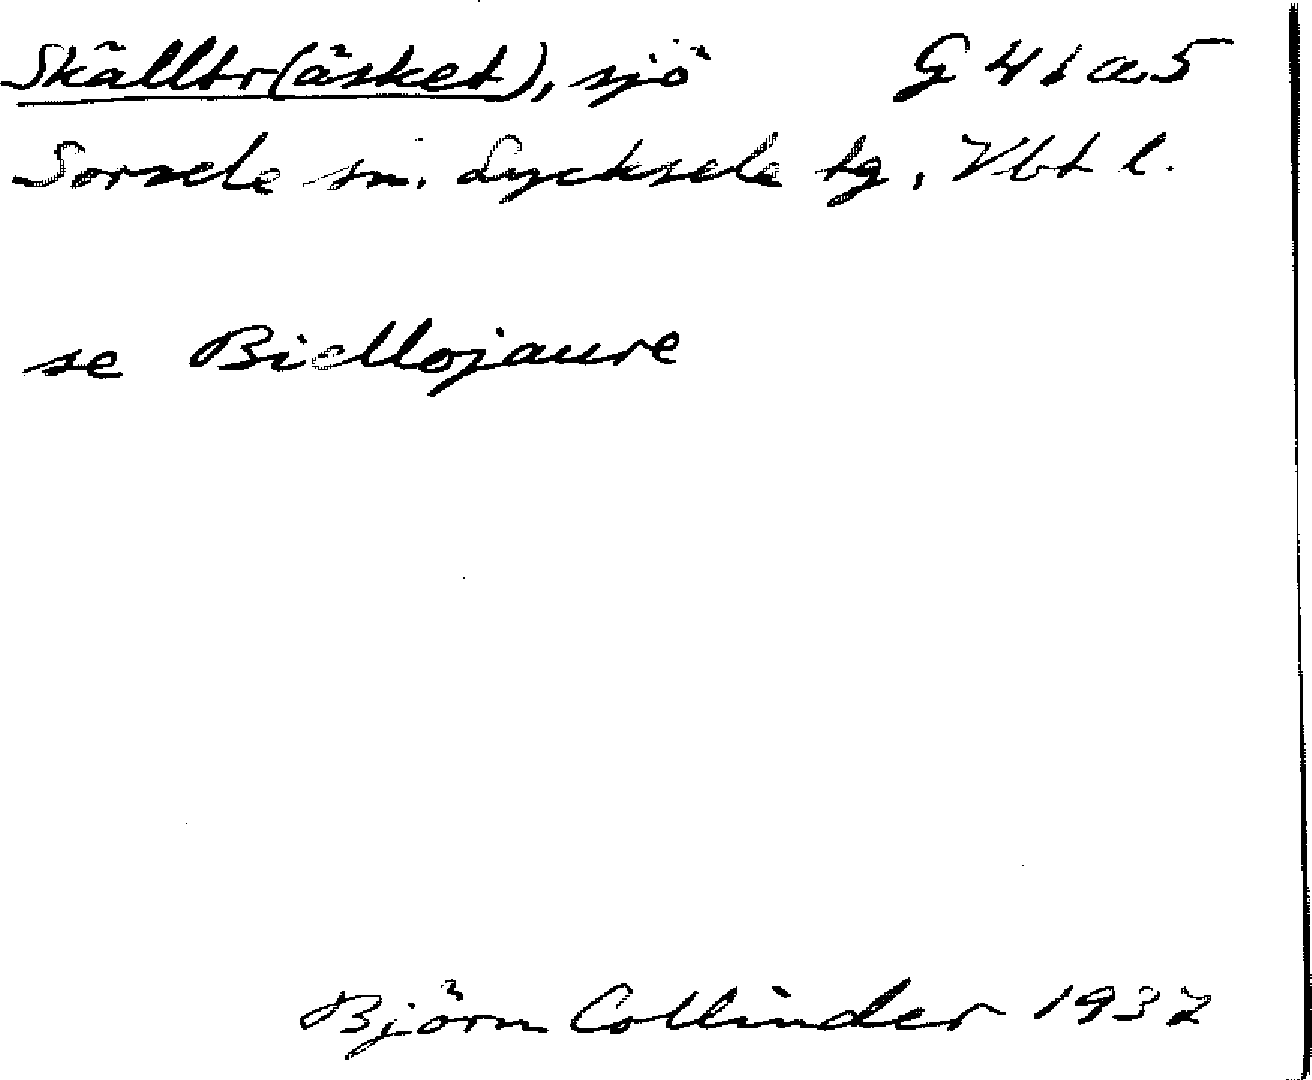 Skälltr(äsket), sjö G 41 a 5
Sorsele sn. Lycksele tg, Vbt l.
se Biellojaure
Björn Collinder 1937